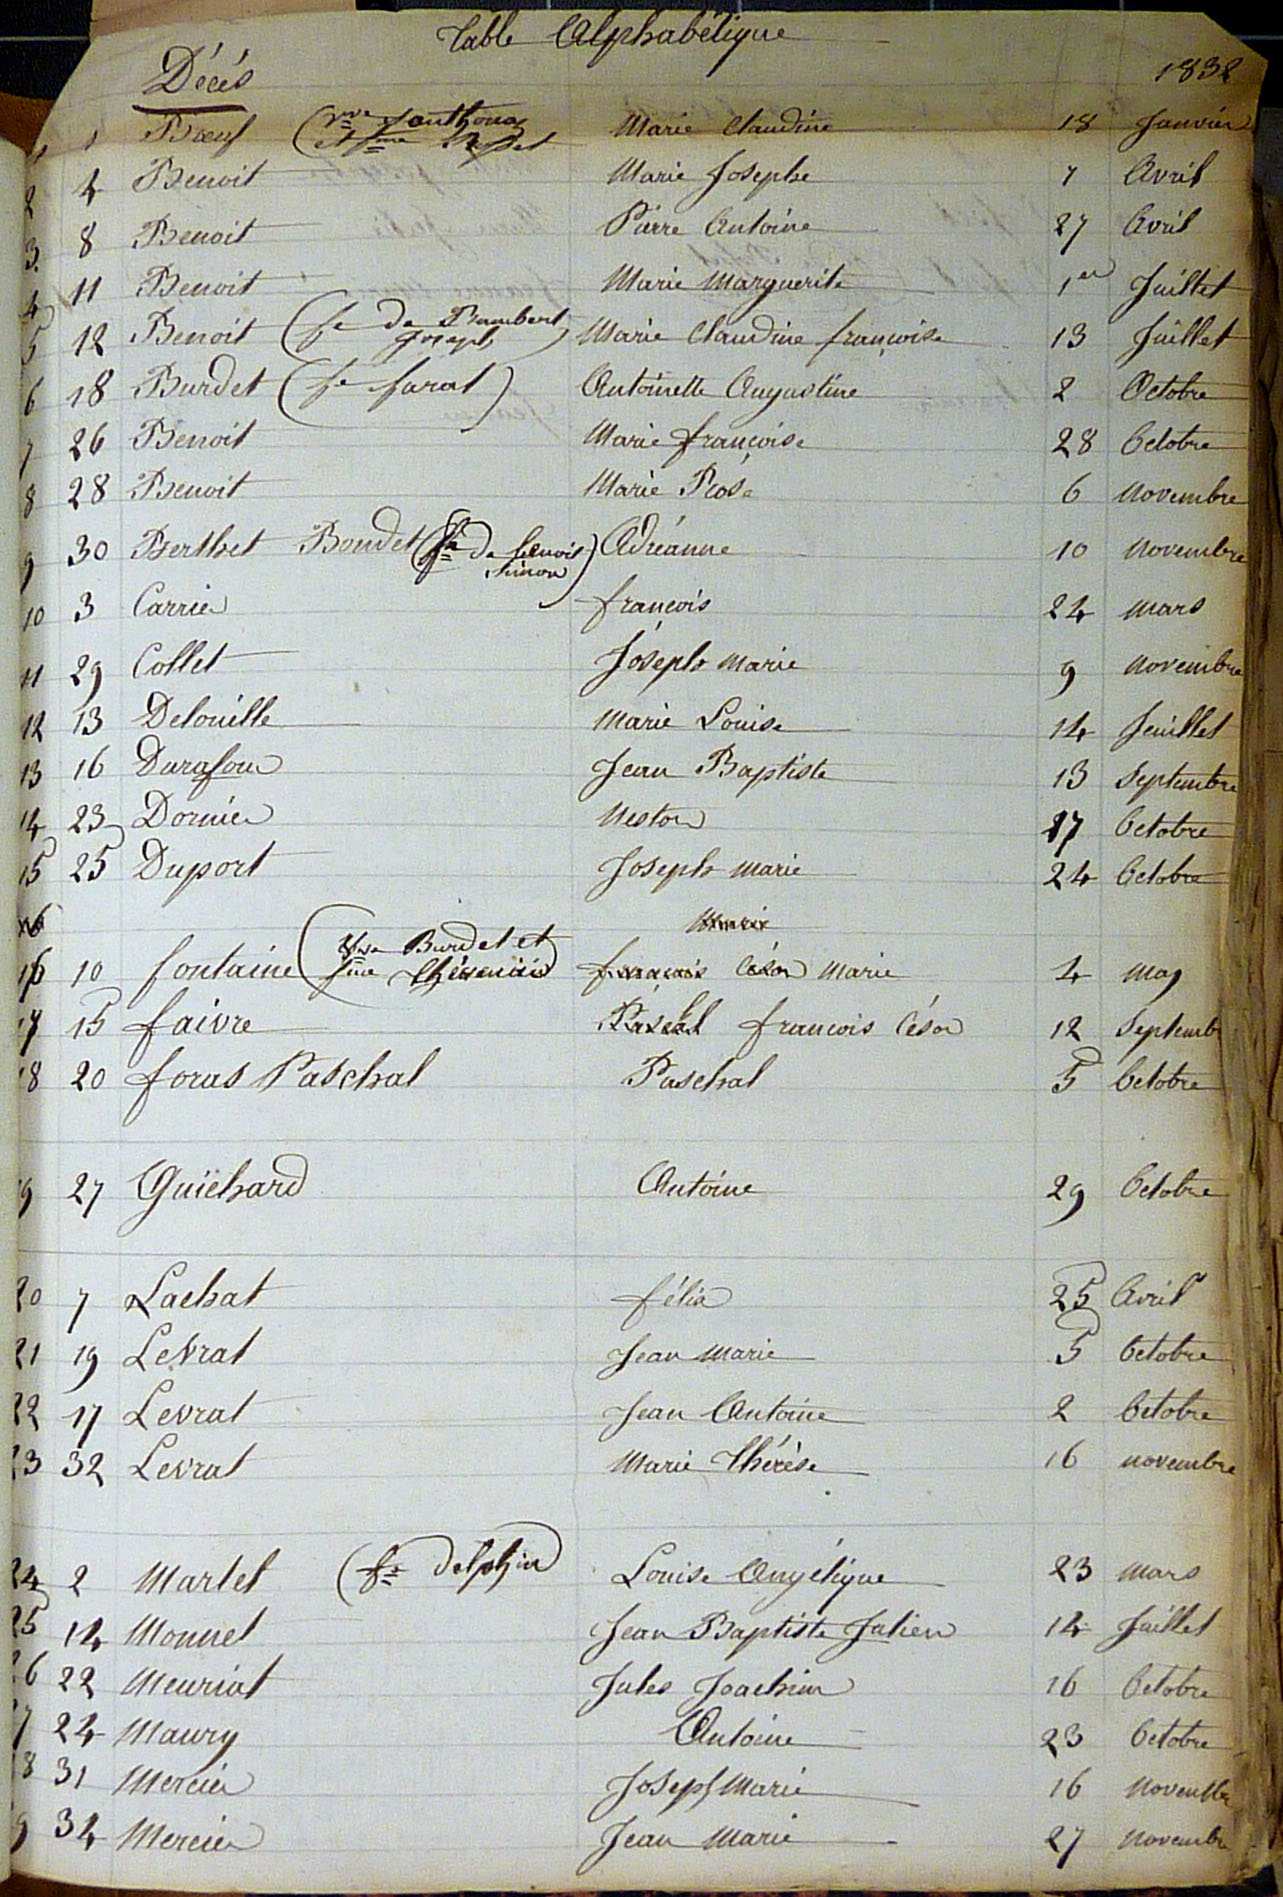 Table Alphabétique
1832
Décès
1 1 Bœuf (Vve et fme Marie Claudine 18 Janvier
2 4 Benoit Marie Josephe 7 Avril
3 8 Benoit Pierre Antoine 27 Avril
4 11 Benoit Marie Marguerite 1er Juillet
5 12 Benoit (fe de Bambert Joseph) Marie Claudine françoise 13 Juillet
6 18 Burdet (fe farat) Antoinette Augustine 2 Octobre
7 26 Benoit Marie françoise 28 Octobre
8 28 Benoit Marie Rose 6 Novembre
9 30 Berthet Bondet (fe de benoit) Adréanne 10 Novembre
10 3 Carrier françois 24 Mars
11 29 Collet Joseph Marie 9 Novembre
12 13 Delouille Marie Louise 14 Juillet
13 16 Durafour Jean Baptiste 13 Septembre
14 23 Dornier Nestor 17 Octobre
15 25 Duport Joseph Marie 24 Octobre
16 10 fontaine (Vve Burdet et fme Thévenin) Marie 4 May
17 15 faivre françois César 12 Septembr
18 20 foras Paschal Paschal 5 Octobre
19 27 Guichard Antoine 29 Octobre
20 7 Lachat félix 25 Avril
21 19 Levrat Jean Marie 5 Octobre
22 17 Levrat Jean Antoine 2 Octobre
23 32 Levrat Marie Thérèse 16 novembre
24 2 Martel (fe delphin) Louise Angélique 23 Mars
25 14 Monnet Jean Baptiste Julien 14 Juillet
26 22 Meuriat Jules Joachim 16 Octobre
7 24 Maury Antoine 23 Octobre
8 31 Mercier Joseph Marie 16 Novembre
9 34 Mercier Jean Marie 27 Novembre